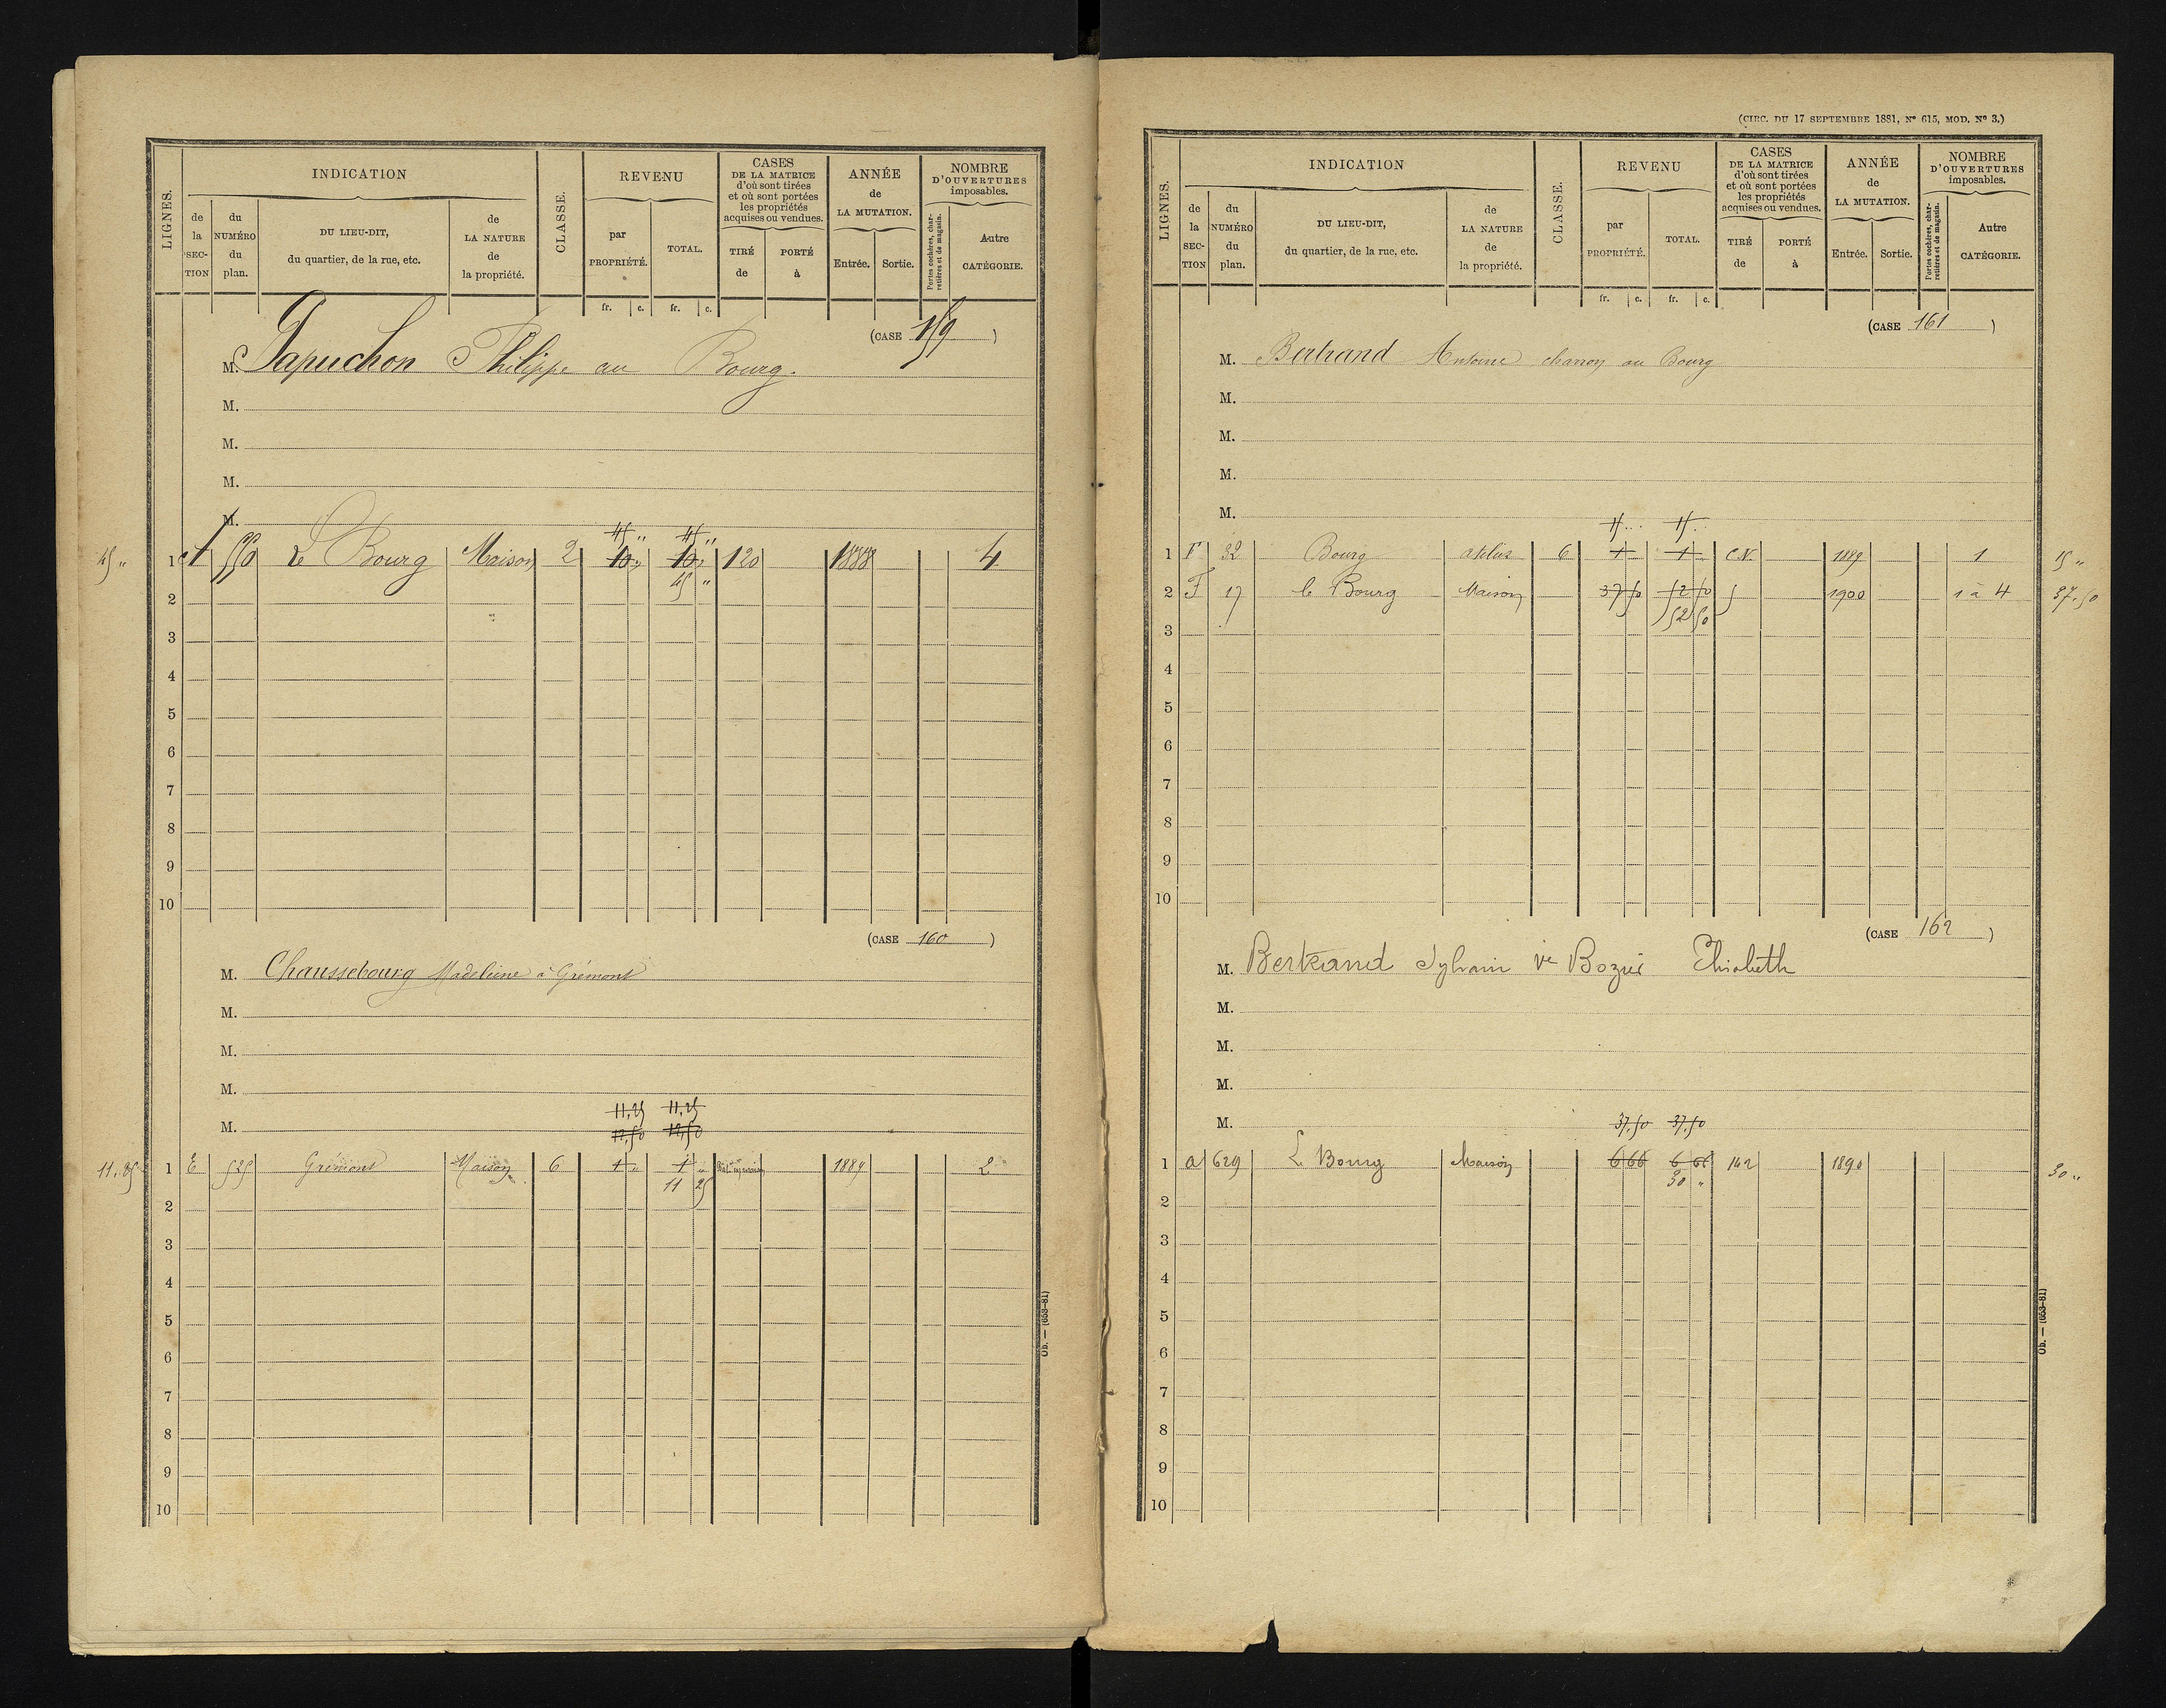 LIGNES.
INDICATION
de la SECTION
du NUMÉRO du plan.
DU LIEU-DIT, du quartier, de la rue, etc.
de LA NATURE de la propriété.
CLASSE.
REVENU
par PROPRIÉTÉ.
TOTAL.
fr. c. fr. c.
CASES DE LA MATRICE d'où sont tirées et où sont portées les propriétés acquises ou vendues.
TIRÉ de
PORTÉ à
ANNÉE de LA MUTATION.
Entrée. Sortie.
NOMBRE D'OUVERTURES imposables.
Portes cochères, charretières et de magasin.
Autre CATÉGORIE.
(CASE 159)
M. Papuchon Philippe au Bourg.
M.
M.
M.
M.
45 " 45 "
45 " 1 550 Le Bourg Maison 2 10 " 10 " 120 1888 4
45 "
2
3
4
5
6
7
8
9
10
(CASE 160)
M. Chaussebourg Madeleine à Grémont
M.
M.
M.
M.
11,25 11,25
12,50 12,50
1 E 525 Grémont Maison 6 1 " 1 " 1889 2
11 25
2
3
4
5
6
7
8
9
10
Ob. — (653-81)
(CIRC. DU 17 SEPTEMBRE 1881, Nº 615, MOD. Nº 3.)
LIGNES.
INDICATION
de la SECTION
du NUMÉRO du plan.
DU LIEU-DIT, du quartier, de la rue, etc.
de LA NATURE de la propriété.
CLASSE.
REVENU
par PROPRIÉTÉ.
TOTAL.
fr. c. fr. c.
CASES DE LA MATRICE d'où sont tirées et où sont portées les propriétés acquises ou vendues.
TIRÉ de
PORTÉ à
ANNÉE de LA MUTATION.
Entrée. Sortie.
NOMBRE D'OUVERTURES imposables.
Portes cochères, charretières et de magasin.
Autre CATÉGORIE.
(CASE 161)
M. Bertrand Antoine charron au Bourg
M.
M.
M.
M.
15 15
1 F 32 Bourg atelier 6 1 1 C.N. 1889 1 15 "
2 F 17 le Bourg Maison 37 50 52 50 5 1900 1 à 4 37.50
52 50
3
4
5
6
7
8
9
10
(CASE 162)
M. Bertrand Sylvain ve Elisabeth
M.
M.
M.
M.
37,50 37,50
1 a 629 L Bourg Maison 6 66 6 66 142 1890 30 "
30 "
2
3
4
5
6
7
8
9
10
Ob. — (653-81)